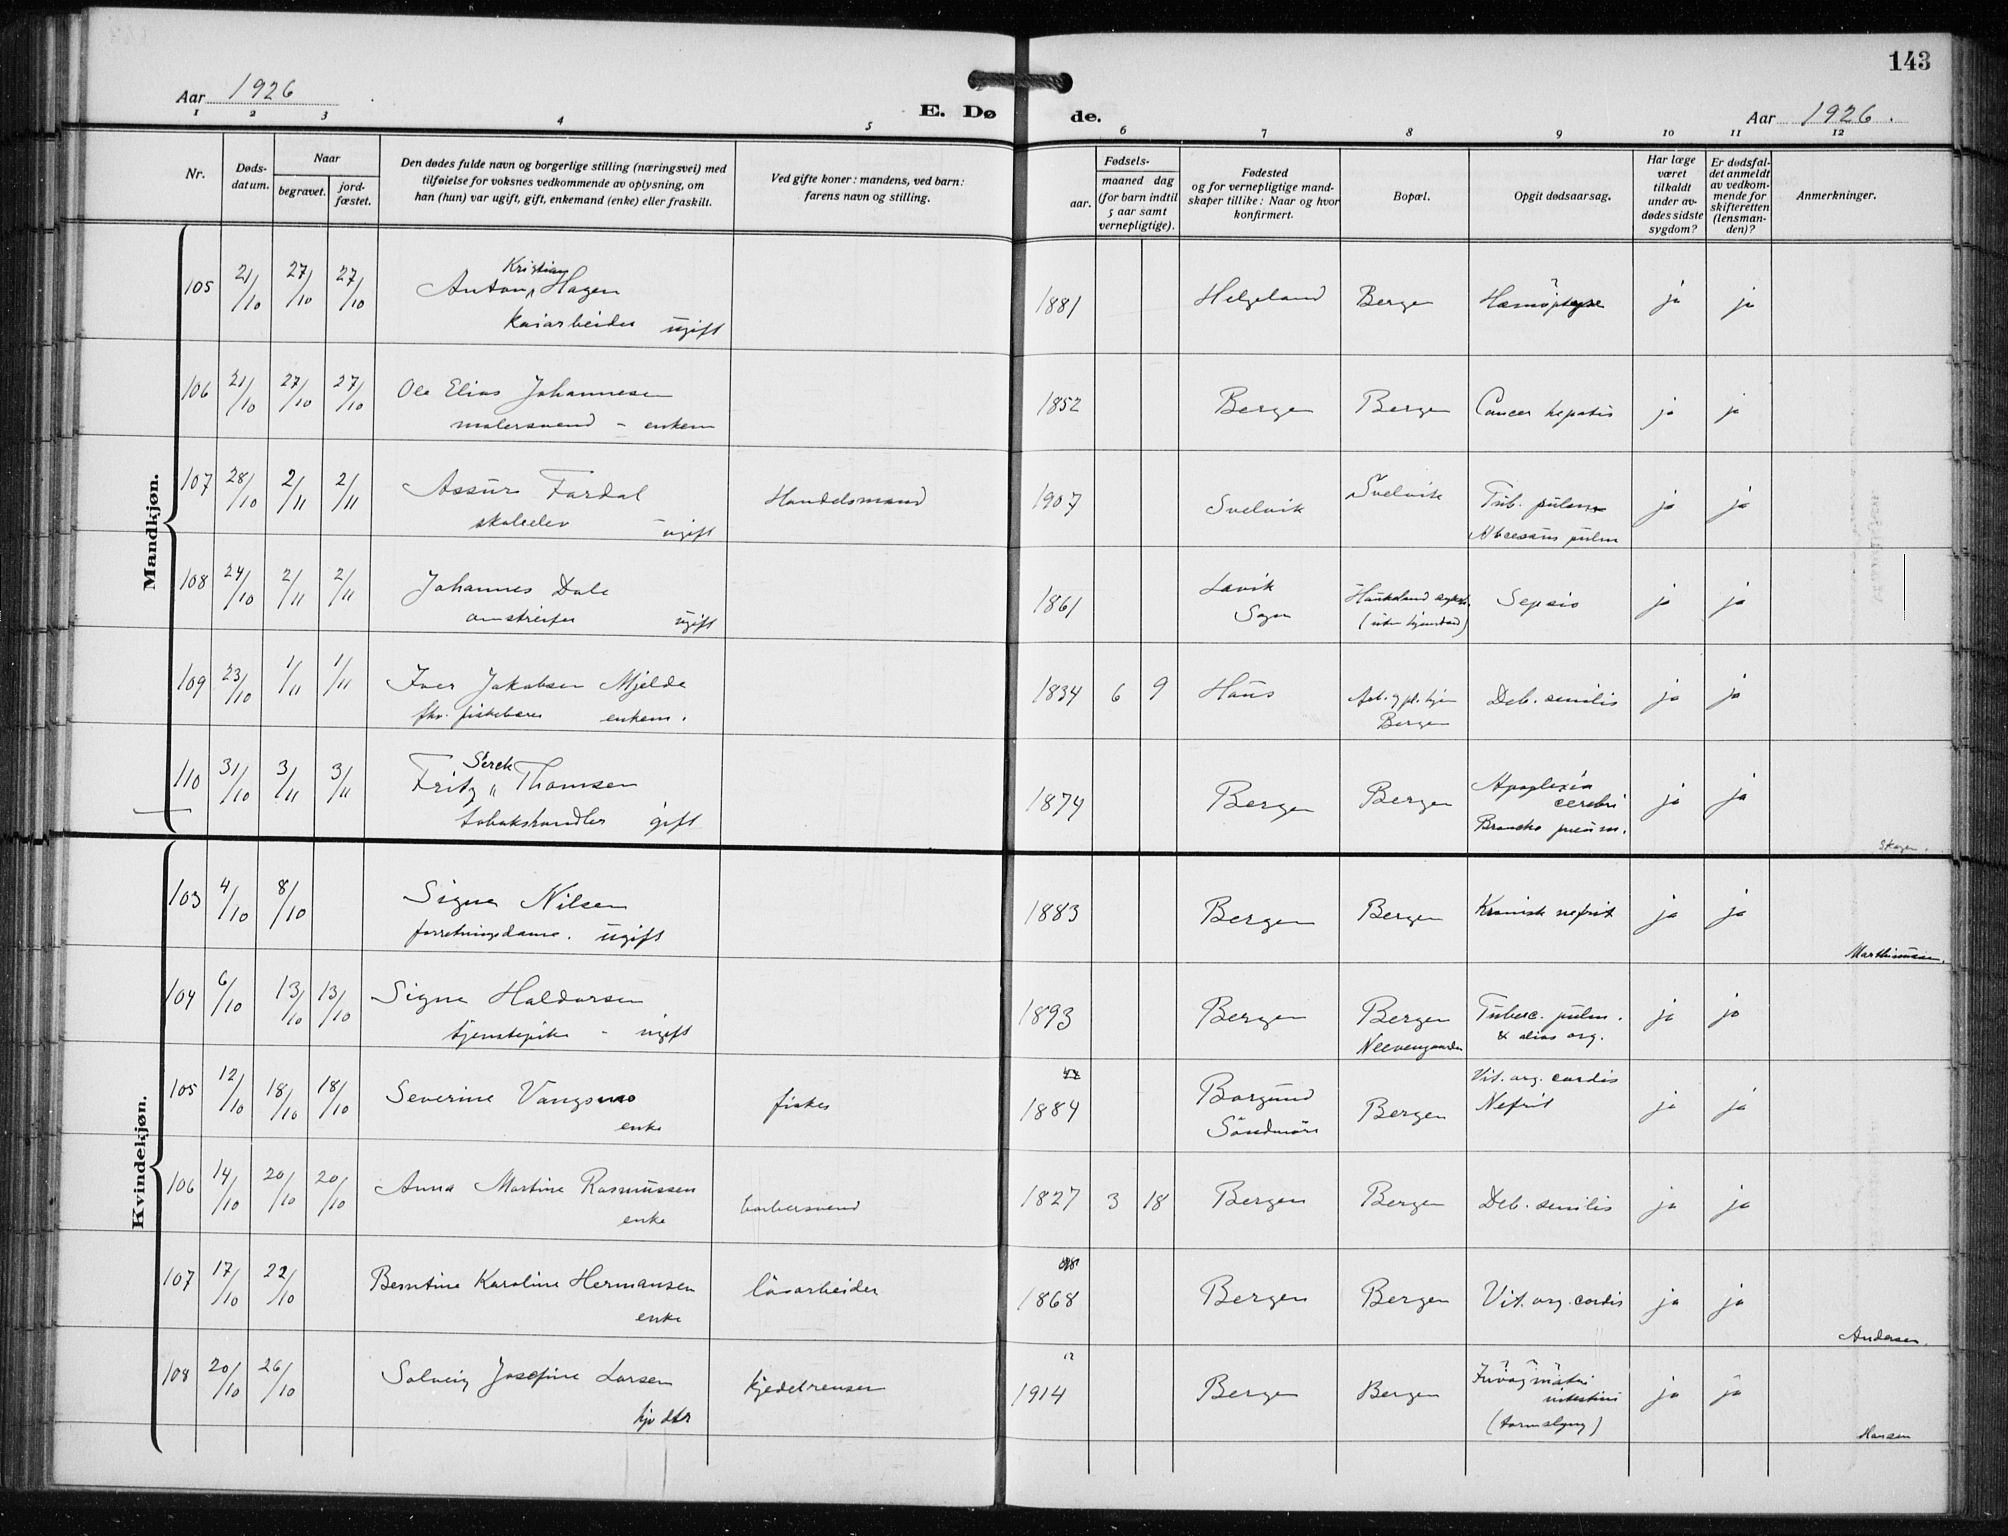 143
Aar 1926
E. Dø de.
Aar 1926.
1 2 3 4 5 6 7 8 9 10 11 12
Nr.
Døds-
datum.
Naar
begravet.
jord-
fæstet.
Den dødes fulde navn og borgerlige stilling (næringsvei) med
tilføielse for voksnes vedkommende av oplysning, om
han (hun) var ugift, gift, enkemand (enke) eller fraskilt.
Ved gifte koner: mandens, ved barn:
farens navn og stilling.
Fødsels-
aar.
maaned dag
(for barn indtil
5 aar samt
vernepligtige).
Fødested
og for vernepligtige mand-
skaper tillike: Naar og hvor
konfirmert.
Bopæl.
Opgit dødsaarsag.
Har læge
været
tilkaldt
under av-
dødes sidste
sygdom?
Er dødsfal-
det anmeldt
av vedkom-
mende for
skifteretten
(lensman-
den)?
Anmerkninger.
Mandkjøn.
Kristian
105 21/10 27/10 27/10 Anton Hagen 1881 Helgeland Bergen ja ja
Kaiarbeider ugift
106 21/10 27/10 27/10 Ole Elias Johannesen 1852 Bergen Bergen Cancer hepatis ja ja
malersvend - enkem
107 28/10 2/11 2/11 Assur Fardal Handelsmand 1907 Svelvik Svelvik Tub. pulm ja ja
skoleelev ugift Abcessus pulm
108 24/10 2/11 2/11 Johannes Dale 1861 Lavik Haukeland sykeh. Sepsis ja ja
omstreifer ugift Sogn (uten hjemsted)
109 23/10 1/11 1/11 Iver Jakobsen Mjelde 1834 6 9 Haus Arb. og pl. hjem Deb. senilis ja ja
fhv. fiskebærer enkem. Bergen
Serck
110 31/10 3/11 3/11 Fritz " Thomsen 1874 Bergen Bergen Apoplexia cerebri ja ja
tobakshandler gift Broncho pneum.
Skagen.
Kvindekjøn.
103 4/10 8/10 Signe Nilsen 1883 Bergen Bergen Kronisk nefrit ja ja
forretningsdame. ugift
Marthinussen.
104 6/10 13/10 13/10 Signe Haldorsen 1893 Bergen Bergen Tuberc. pulm. ja ja
tjenestepike - ugift Neevengaarden & alias org.
105 12/10 18/10 18/10 Severine Vangsnes fisker 1884 Borgund Bergen Vit. org. cordis ja ja
enke Søndmøre Nefrit
106 14/10 20/10 20/10 Anna Martine Rasmussen barbersvend 1827 3 18 Bergen Bergen Deb. senilis ja ja
enke
107 17/10 22/10 Berntine Karoline Hermansen løsarbeider 1868 Bergen Bergen Vit. org. cordis ja ja
enke
Andersen.
12
108 20/10 26/10 Solveig Josefine Larsen kjedelrenser 1914 Bergen Bergen ja ja
intestini
(tarmslyng)
Hansen